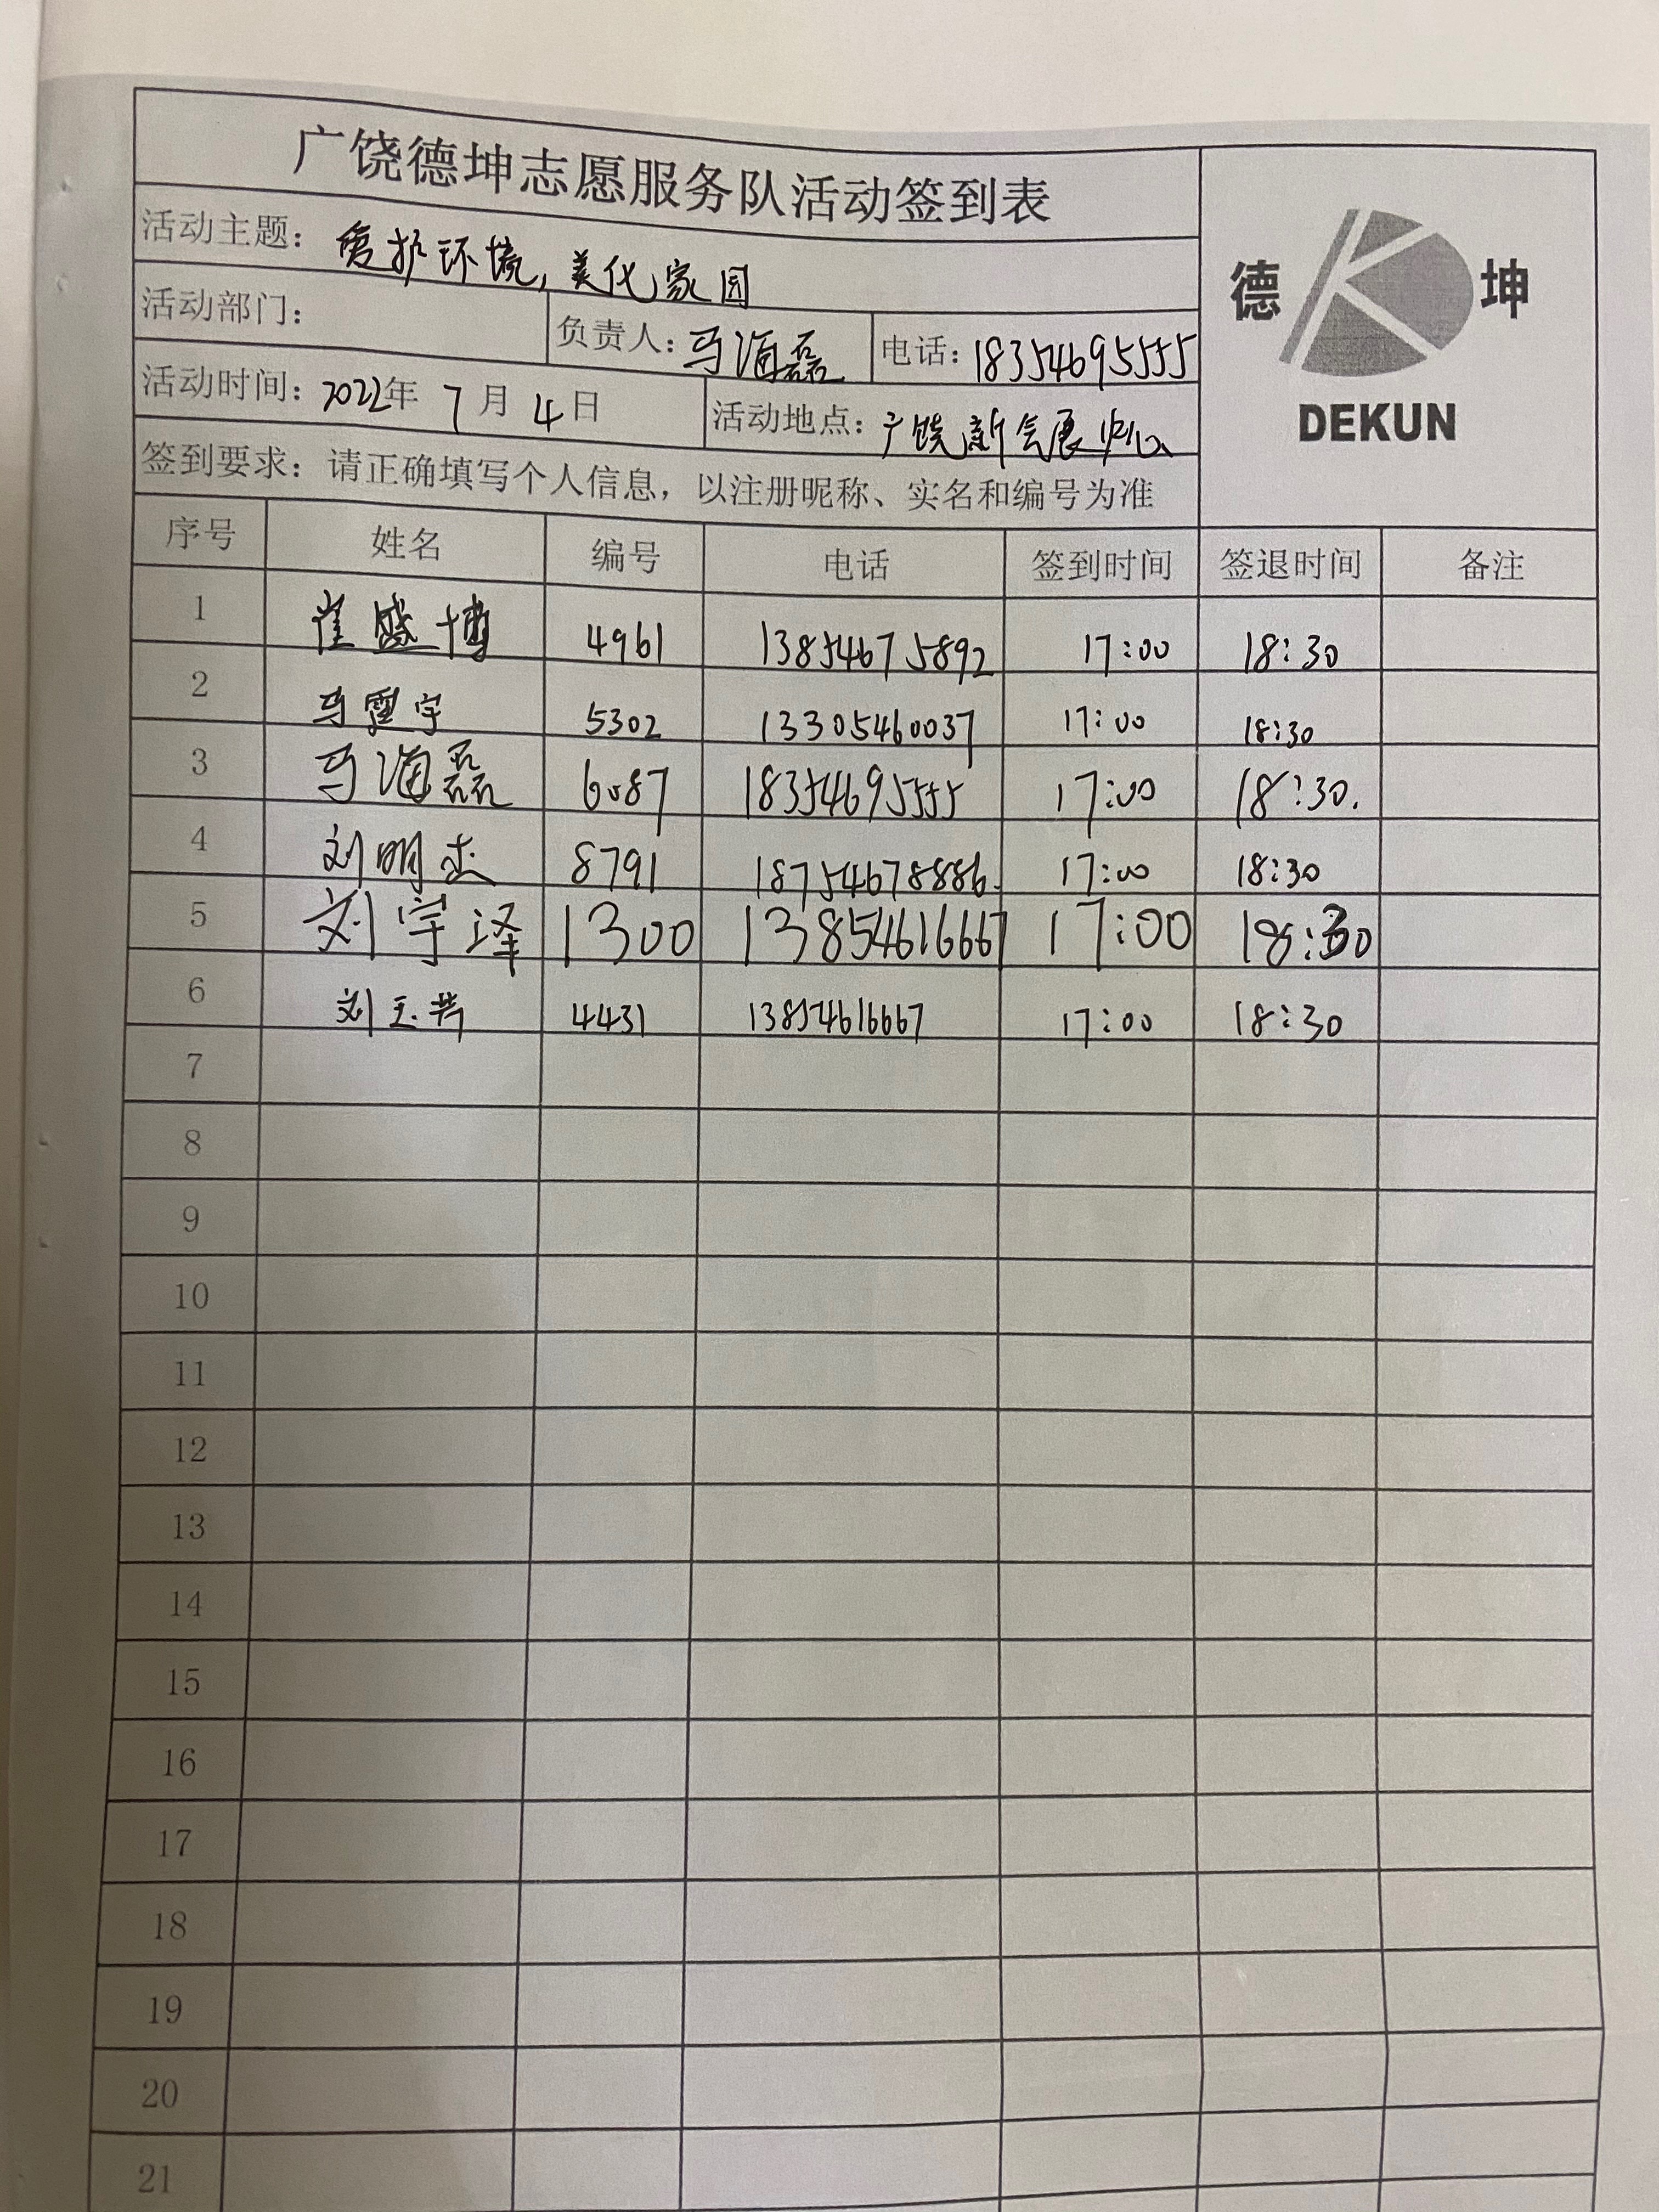 广饶德坤志愿服务队活动签到表
活动主题：爱护环境，美化家园
德 坤
DEKUN
活动部门： 负责人：马海磊 电话：18354695555
活动时间：2022年 7月 4日 活动地点：广饶新会展中心
签到要求：请正确填写个人信息，以注册昵称、实名和编号为准
序号 姓名 编号 电话 签到时间 签退时间 备注
1 崔盛博 4961 13854675892 17:00 18:30
2 马霄宇 5302 13305460037 17:00 18:30
3 马海磊 6087 18354695555 17:00 18:30.
4 刘明杰 8791 18754678886. 17:00 18:30
5 刘宇泽 1300 13854616667 17:00 18:30
6 刘玉 4431 13854616667 17:00 18:30
7
8
9
10
11
12
13
14
15
16
17
18
19
20
21